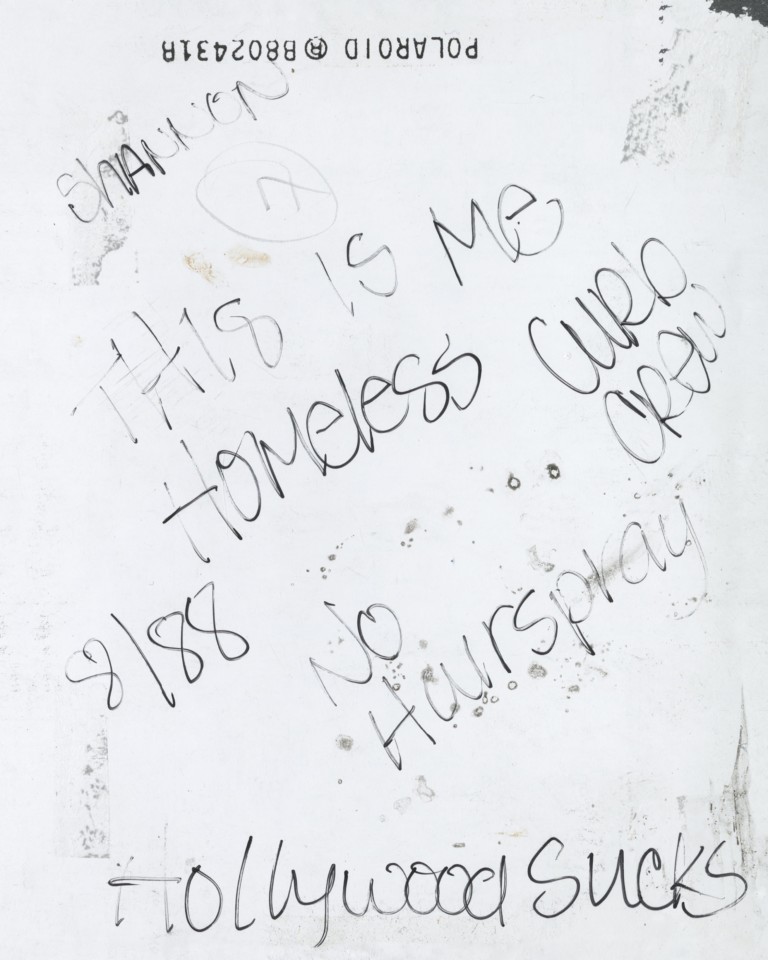 POLAROID ® B802431B
SHANNON
7
THIS IS ME
HOMELESS CURb
CREW
8/88
NO
Hairspray
Hollywood SUCKS